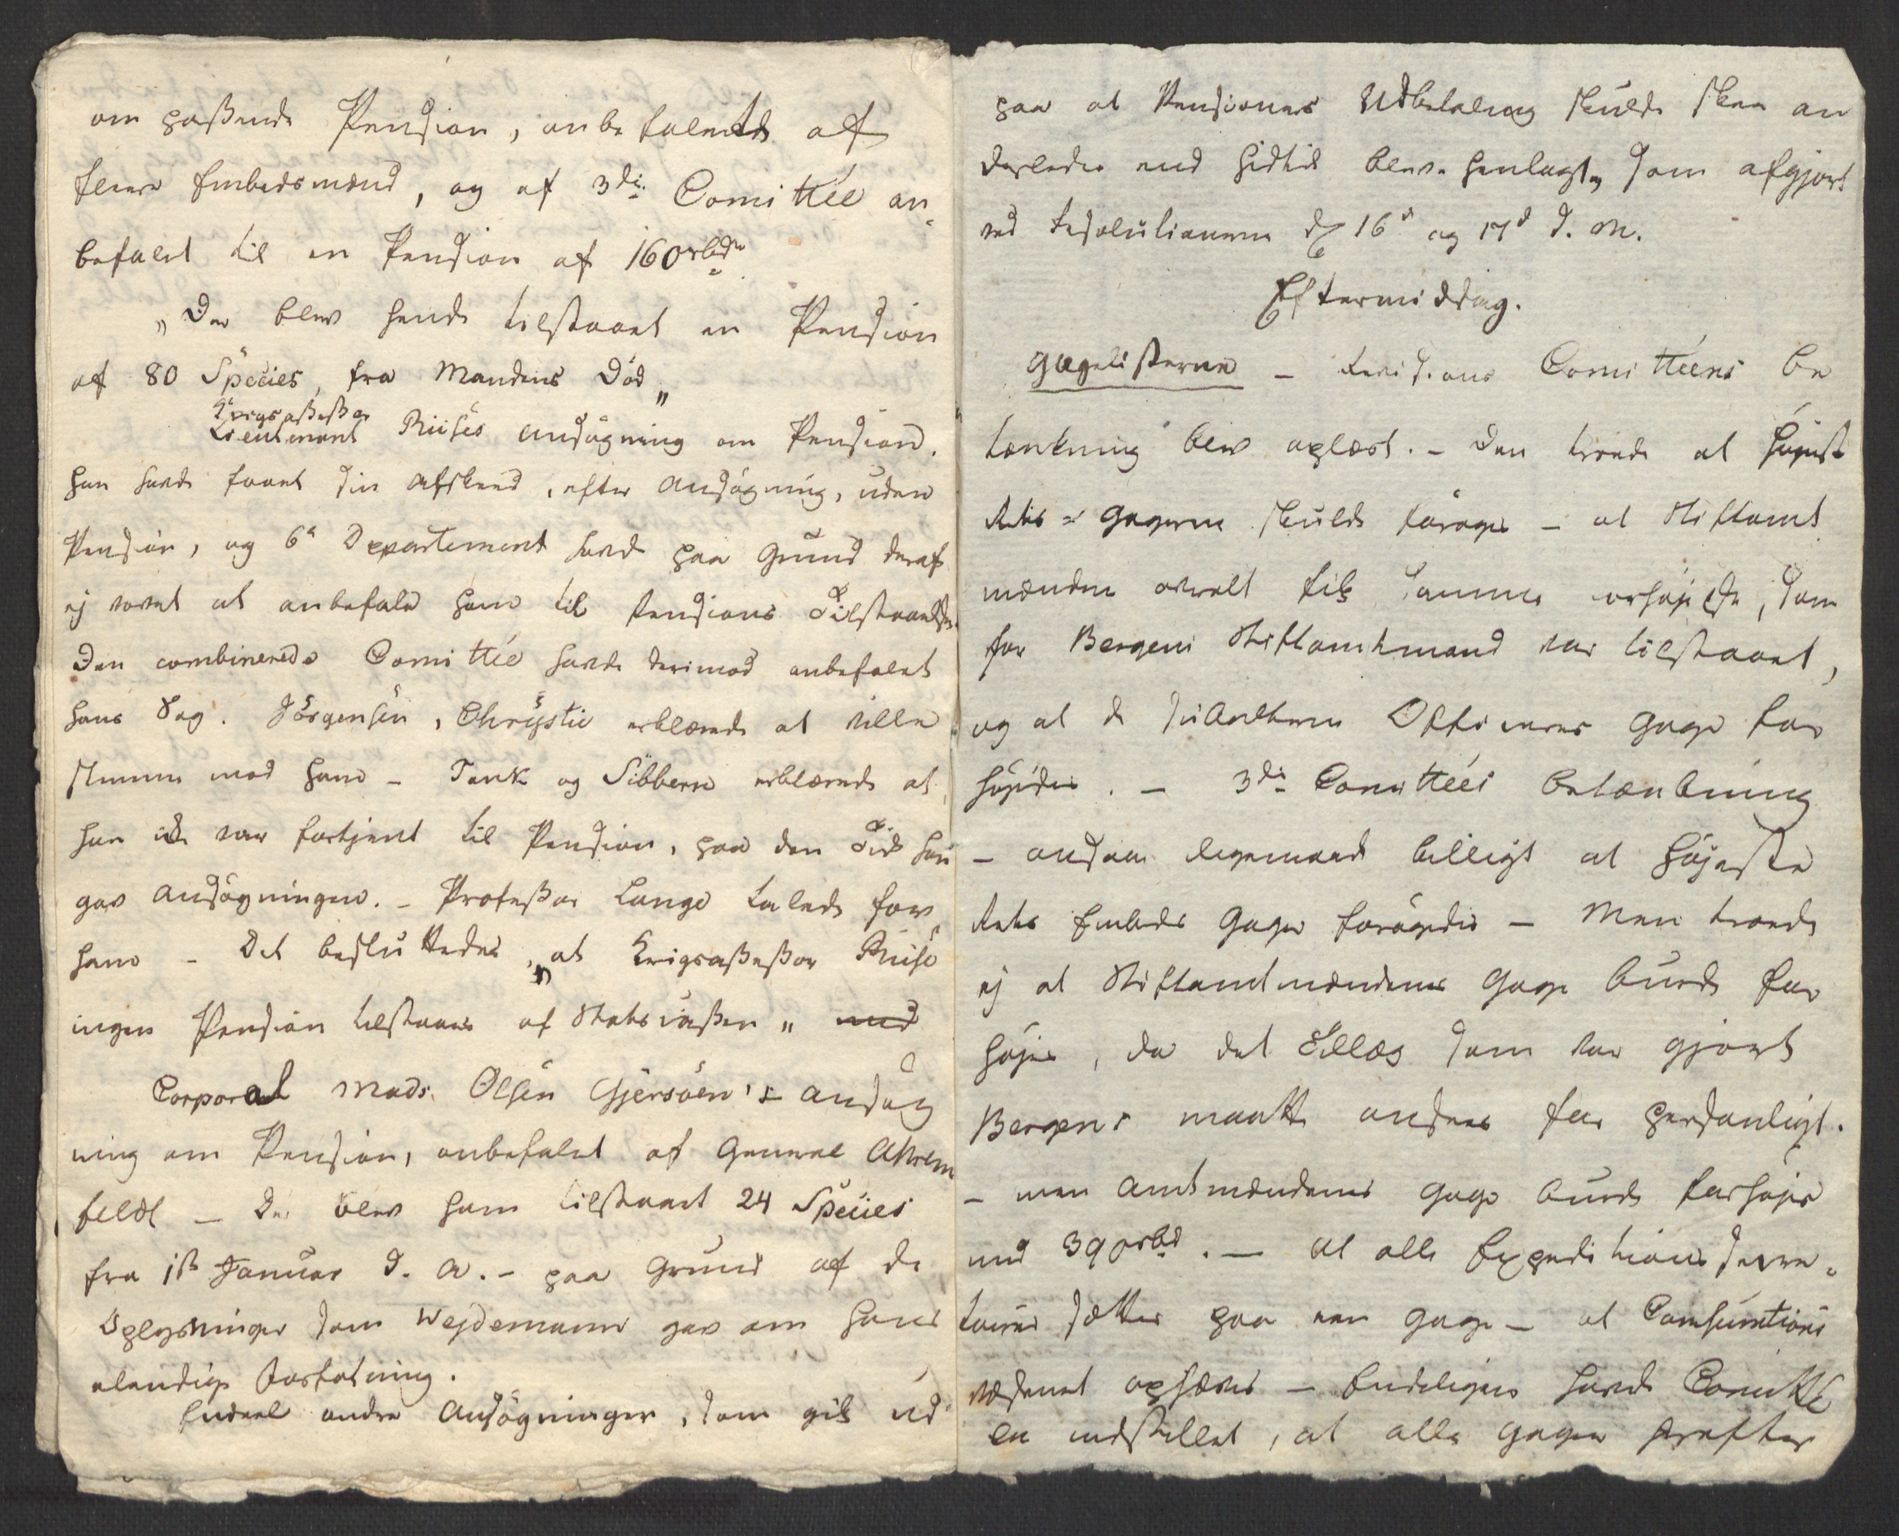 om passende Pension, anbefalende af
flere Embedsmænd, og af 3die Comittée an-
befalet til en Pension af 160 rbdr
„Der blev hende tilstaaet en Pension
af 80 Species, fra Mandens Död„
Krigsassessor
Lieutenant Riises Ansögning om Pension.
han havde faaet sin Afskeed, efter Ansögning, uden
Pension, og 6te Departement havde paa Grund deraf
ej vovet at anbefale ham til Pensions Tilstaaelse.
Den combinerede Comittée havde derimod anbefalet
hans Sag. Jörgensen, Chrystie erklærede at ville
stemme mod ham – Tank og Sibbern erklærede at
han ikke var fortjent til Pension, paa den Tid han
gav Ansögningen. – Professor Lange talede for
ham – Det besluttedes, „at Krigsassessor Riise
ingen Pension tilstaaes af Statscassen„
Corporal Mads Olsen Gjersöen's Ansög
ning om Pension, anbefalet af General Ahren
feldt – Der blev ham tilstaaet 24 Species
fra 1ste Januar d. A. – paa Grund af de
Oplysninger som Wejdemann gav om hans
elendige Forfatning.
Endeel andre Ansögninger, som gik ud
paa at Pensioners Udbetaling skulde skee an
derledes end hidtil blev henlagte, som afgjort
ved Resolutionerne af 16de og 17de d. M.
Eftermiddag.
Gagelisterne – Revisions Comitteens Be
tænkning blev oplæst. – Den troede at Höjeste
Rets Gagerne skulde foröges – at Stiftamt
mændene overalt fik samme Forhöjelse, som
for Bergens Stiftamtmand var tilstaaet,
og at de subalterne Officerers Gage for
höjedes. – 3die Comittées Betænkning
– ansaae ligemaade billigt at Höjeste
Rets Embeds Gager forögedes – Men troede
ej at Stiftamtmændenes Gage burde for
höjes, da det Tillæg som var gjort
Bergens maatte ansees for personligt.
– men Amtmændenes Gage burde forhöjes
med 390 rbd. – At alle Expeditions Secre-
tairer sættes paa een Gage – at Consumtions
væsenet ophæves – Endeligen havde Comitte
en indstillet, at alle Gager herefter